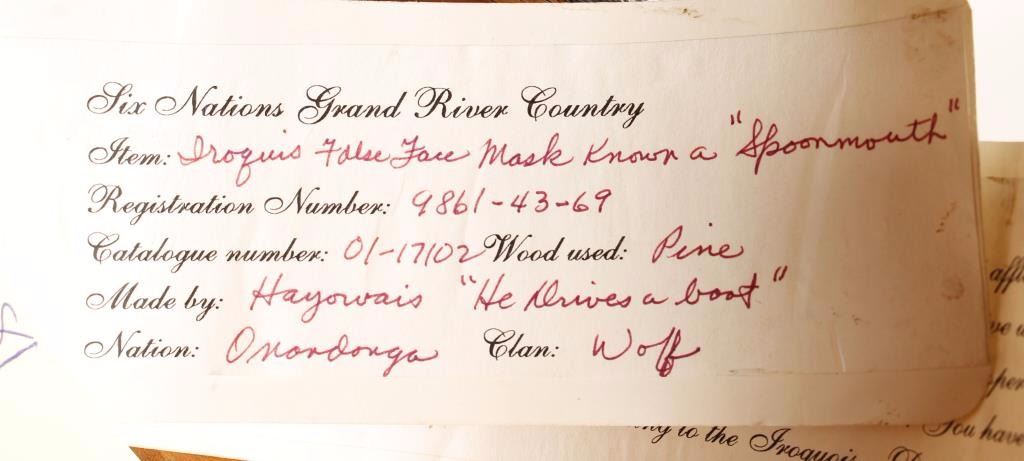 Six Nations Grand River Country
Item: Iroquis False Face Mask Known a "Spoonmouth"
Registration Number: 9861-43-69
Catalogue number: 01-17102 Wood used: Pine
Made by: Hayowais "He Drives a boat"
Nation: Onondonga Clan: Wolf
to the Iroquois
You have